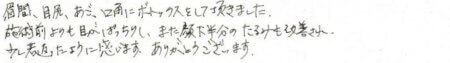 眉間、目尻、あご、口角にボトックスをして頂きました。
施術前よりも目がぱっちりし、また顔下半分のたるみも改善され、
少し若返ったように感じます。ありがとうございます。